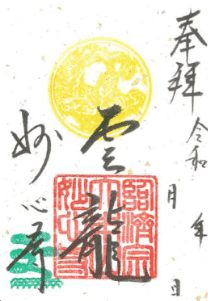 奉拝
令和 年 月 日
雲龍
臨済宗
大本山
妙心寺
妙心寺